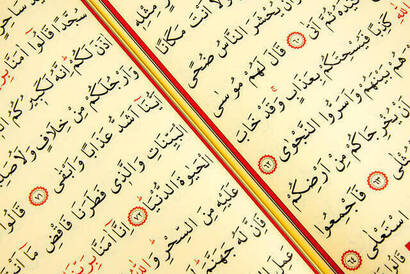 مِثْلِهِ
وَلَا اَنْتَ مَكَانًا
يُحْشَرَ النَّاسُ ضُحًى
ثُمَّ اَتٰى ٦٠ قَالَ لَهُمْ مُوسٰى
اللّٰهِ كَذِبًا فَيُسْحِتَكُمْ بِعَذَابٍ وَقَدْ خَابَ
بَيْنَهُمْ وَاَسَرُّوا النَّجْوٰى ٦٢
اَنْ يُخْرِجَاكُمْ مِنْ اَرْضِكُمْ
٦٣ فَاَجْمِعُوا
اسْتَعْلٰى ٦٤
سُجَّدًا قَالُوا اٰمَنَّا
اٰذَنَ لَكُمْ اِنَّهُ لَكَبِيرُكُمُ
وَاَرْجُلَكُمْ مِنْ خِلَافٍ
اَيُّنَا اَشَدُّ عَذَابًا وَاَبْقٰى ٧١ قَالُوا
الْبَيِّنَاتِ وَالَّذِي فَطَرَنَا فَاقْضِ مَا
الْحَيٰوةَ الدُّنْيَا ٧٢ اِنَّا اٰمَنَّا
عَلَيْهِ مِنَ السِّحْرِ وَاللّٰهُ
فَاِنَّ لَهُ جَهَنَّمَ